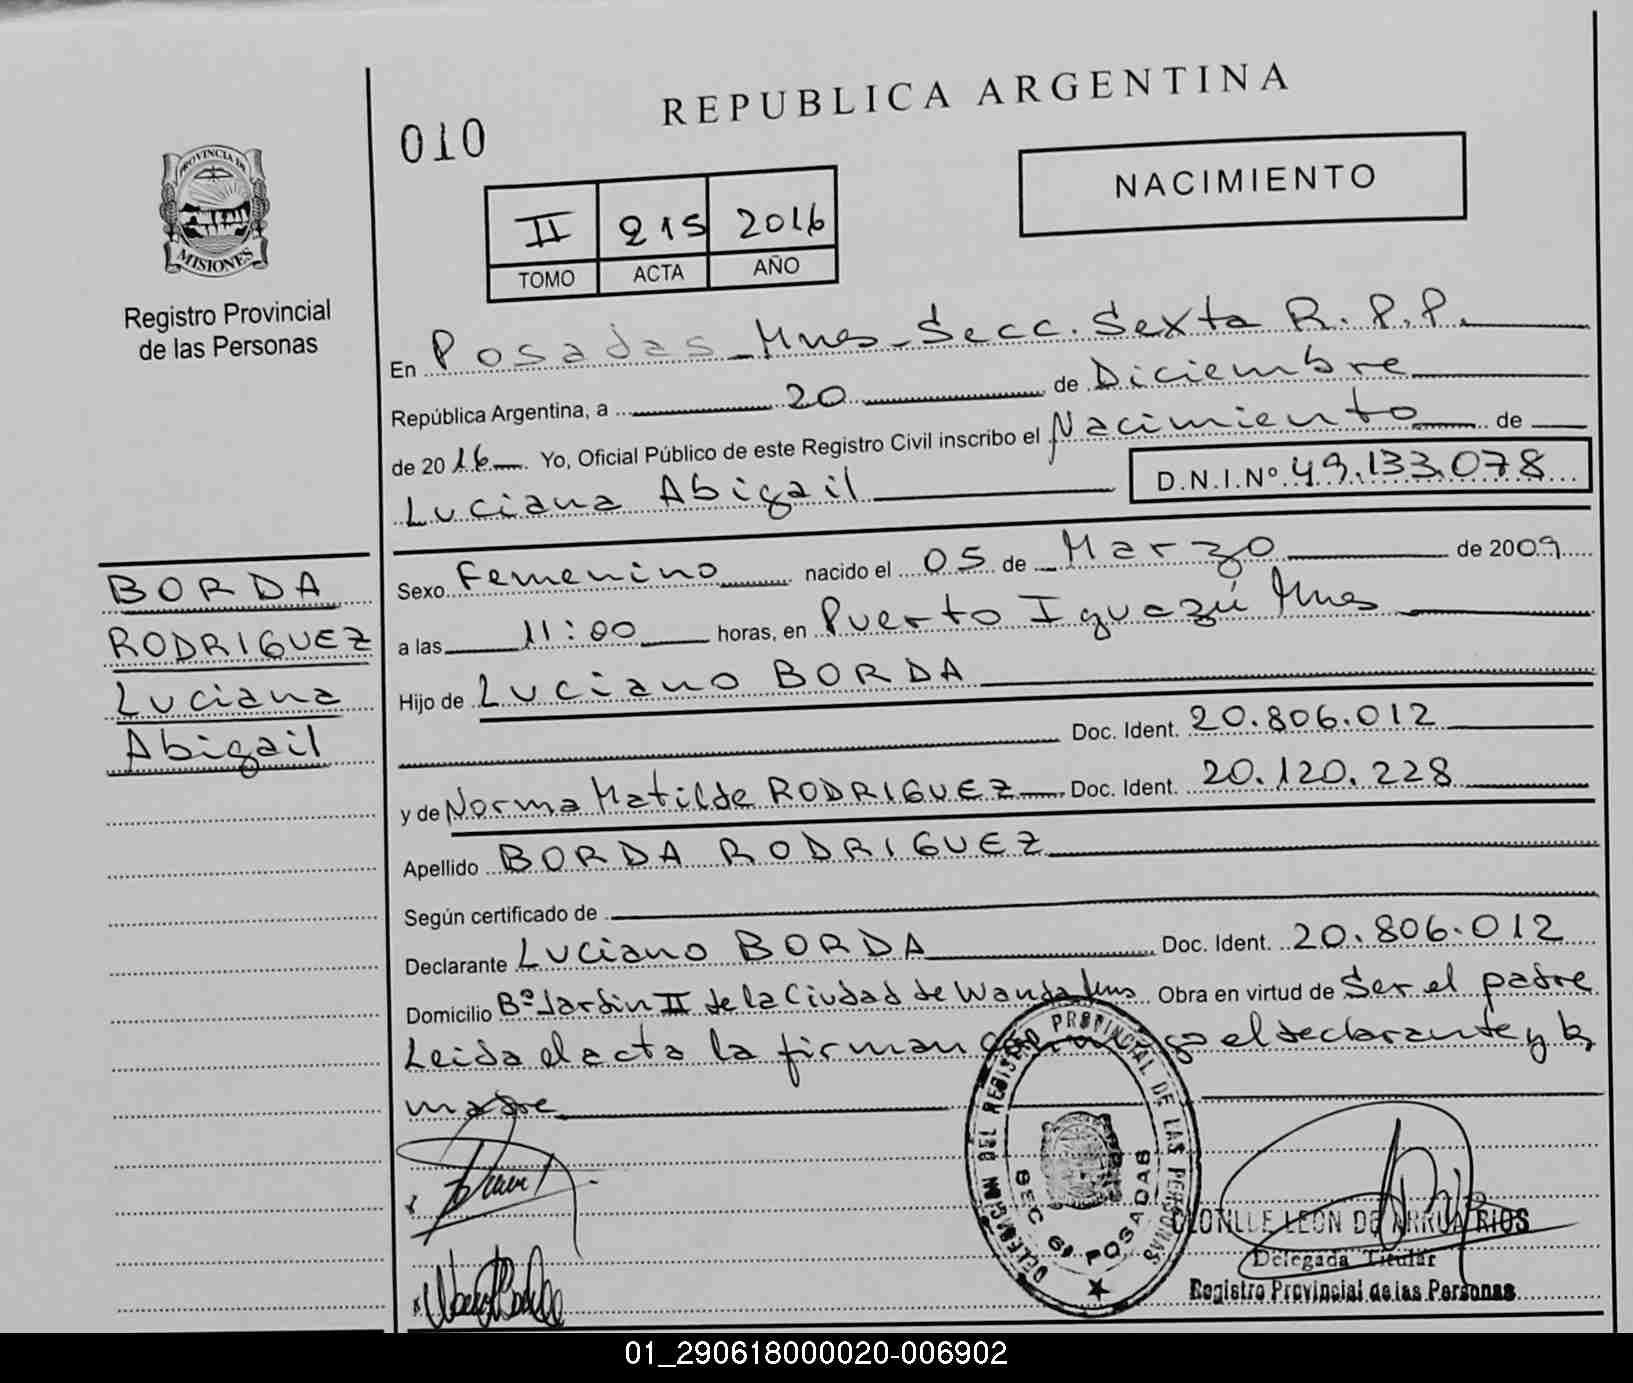 REPUBLICA ARGENTINA
010
NACIMIENTO
II 215 2016
TOMO ACTA AÑO
PROVINCIA DE
MISIONES
Registro Provincial
de las Personas
En Posadas Mnes - Secc. Sexta R.P.P.
República Argentina, a 20 de Diciembre
de 2016. Yo, Oficial Público de este Registro Civil inscribo el Nacimiento de
Luciana Abigail D.N.I.Nº 49.133.078
BORDA
RODRIGUEZ
Luciana
Abigail
Sexo Femenino nacido el 05 de Marzo de 2009
a las 11:00 horas, en Puerto Iguazú Mnes
Hijo de Luciano BORDA
Doc. Ident. 20.806.012
y de Norma Matilde RODRIGUEZ Doc. Ident. 20.120.228
Apellido BORDA RODRIGUEZ
Según certificado de
Declarante Luciano BORDA Doc. Ident. 20.806.012
Domicilio Bº Jardin II de la Ciudad de Wanda Mns Obra en virtud de Ser el padre
Leida el acta la firman el declarante y la
madre
DELEGACION DEL REGISTRO PROVINCIAL DE LAS PERSONAS
SEC 6º POSADAS
LEON DE ARRUA RIOS
Delegada Titular
Registro Provincial de las Personas
01_290618000020-006902